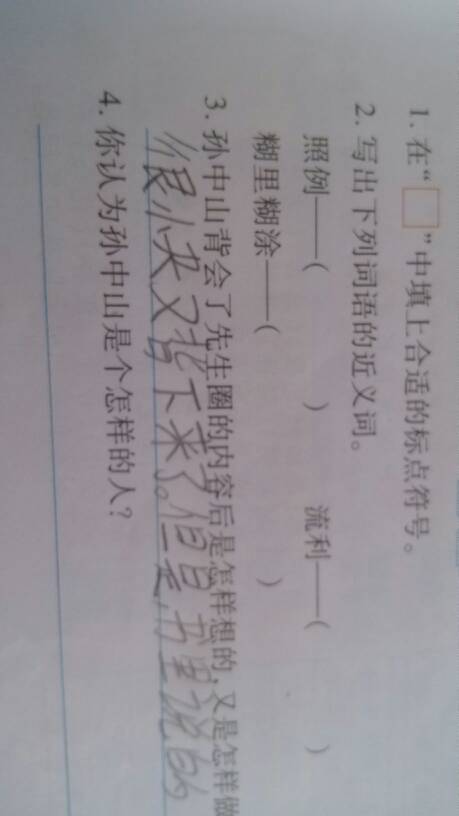 1. 在“□”中填上合适的标点符号。
2. 写出下列词语的近义词。
照例——( ) 流利——( )
糊里糊涂——( )
3. 孙中山背会了先生圈的内容后是怎样想的，又是怎样做
很小夫又背下来了。但是,书里说的
4. 你认为孙中山是个怎样的人？